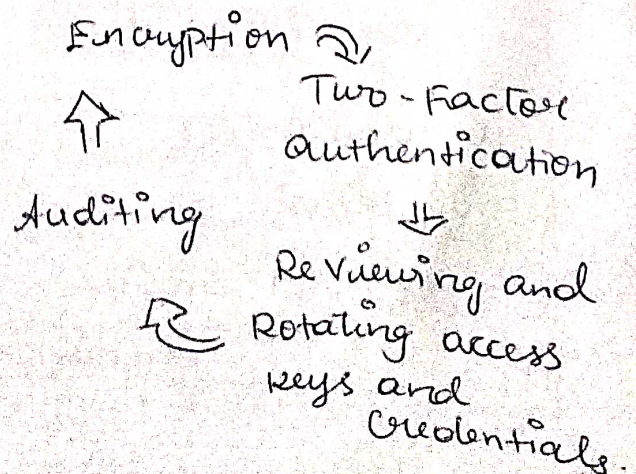 Encryption
Two-Factor
authentication
Auditing
Reviewing and
Rotating access
keys and
Credentials.